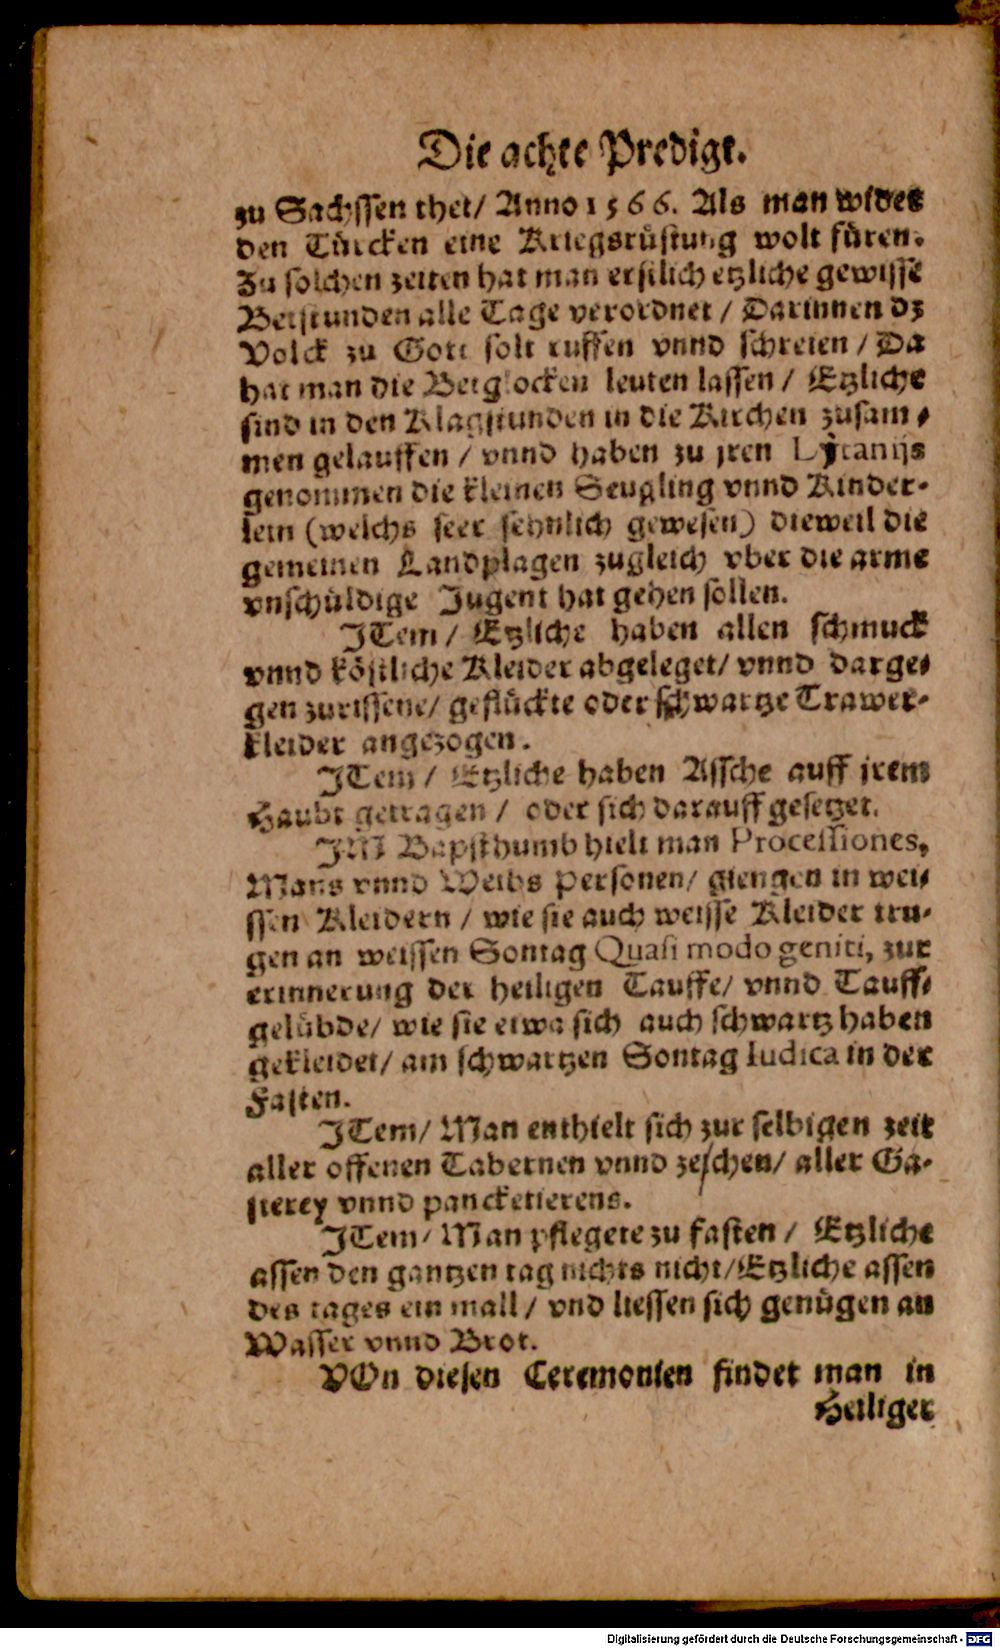 Die achte Predigt.
zu Sachssen thet/ Anno 1566. Als man wider
den Türcken eine Kriegsrüstung wolt füren.
Zu solchen zeiten hat man erstlich etzliche gewisse
Betstunden alle Tage verordnet / Darinnen dz
Volck zu Gott solt ruffen vnnd schreien / Da
hat man die Betglocken leuten lassen / Etzliche
sind in den Klagstunden in die Kirchen zusam-
men gelauffen / vnnd haben zu jren Lytanijs
genommen die kleinen Seugling vnnd Kinder-
lein (welchs seer sehnlich gewesen) dieweil die
gemeinen Landplagen zugleich vber die arme
vnschüldige Jugent hat gehen sollen.
JTem / Etzliche haben allen schmuck
vnnd köstliche Kleider abgeleget/ vnnd darge-
gen zurissene/ geflückte oder schwartze Trawer-
kleider angezogen.
JTem / Etzliche haben Assche auff jrem
Haubt getragen / oder sich darauff gesetzet.
JM Bapsthumb hielt man Processiones,
Mans vnnd Weibs personen/ giengen in weis-
ssen Kleidern / wie sie auch weisse Kleider tru-
gen an weissen Sontag Quasi modo geniti, zur
erinnerung der heiligen Tauffe/ vnnd Tauff-
gelübde/ wie sie etwa sich auch schwartz haben
gekleidet/ am schwartzen Sontag Iudica in der
Fasten.
JTem/ Man enthielt sich zur selbigen zeit
aller offenen Tabernen vnnd zeschen/ aller Ga-
sterey vnnd panckletierens.
JTem/ Man pflegete zu fasten / Etzliche
assen den gantzen tag nichts nicht/ Etzliche assen
des tages ein mall / vnd liessen sich genügen an
Wasser vnnd Brot.
VOn diesen Ceremonien findet man in
Heiliger
Digitalisierung gefördert durch die Deutsche Forschungsgemeinschaft - DFG